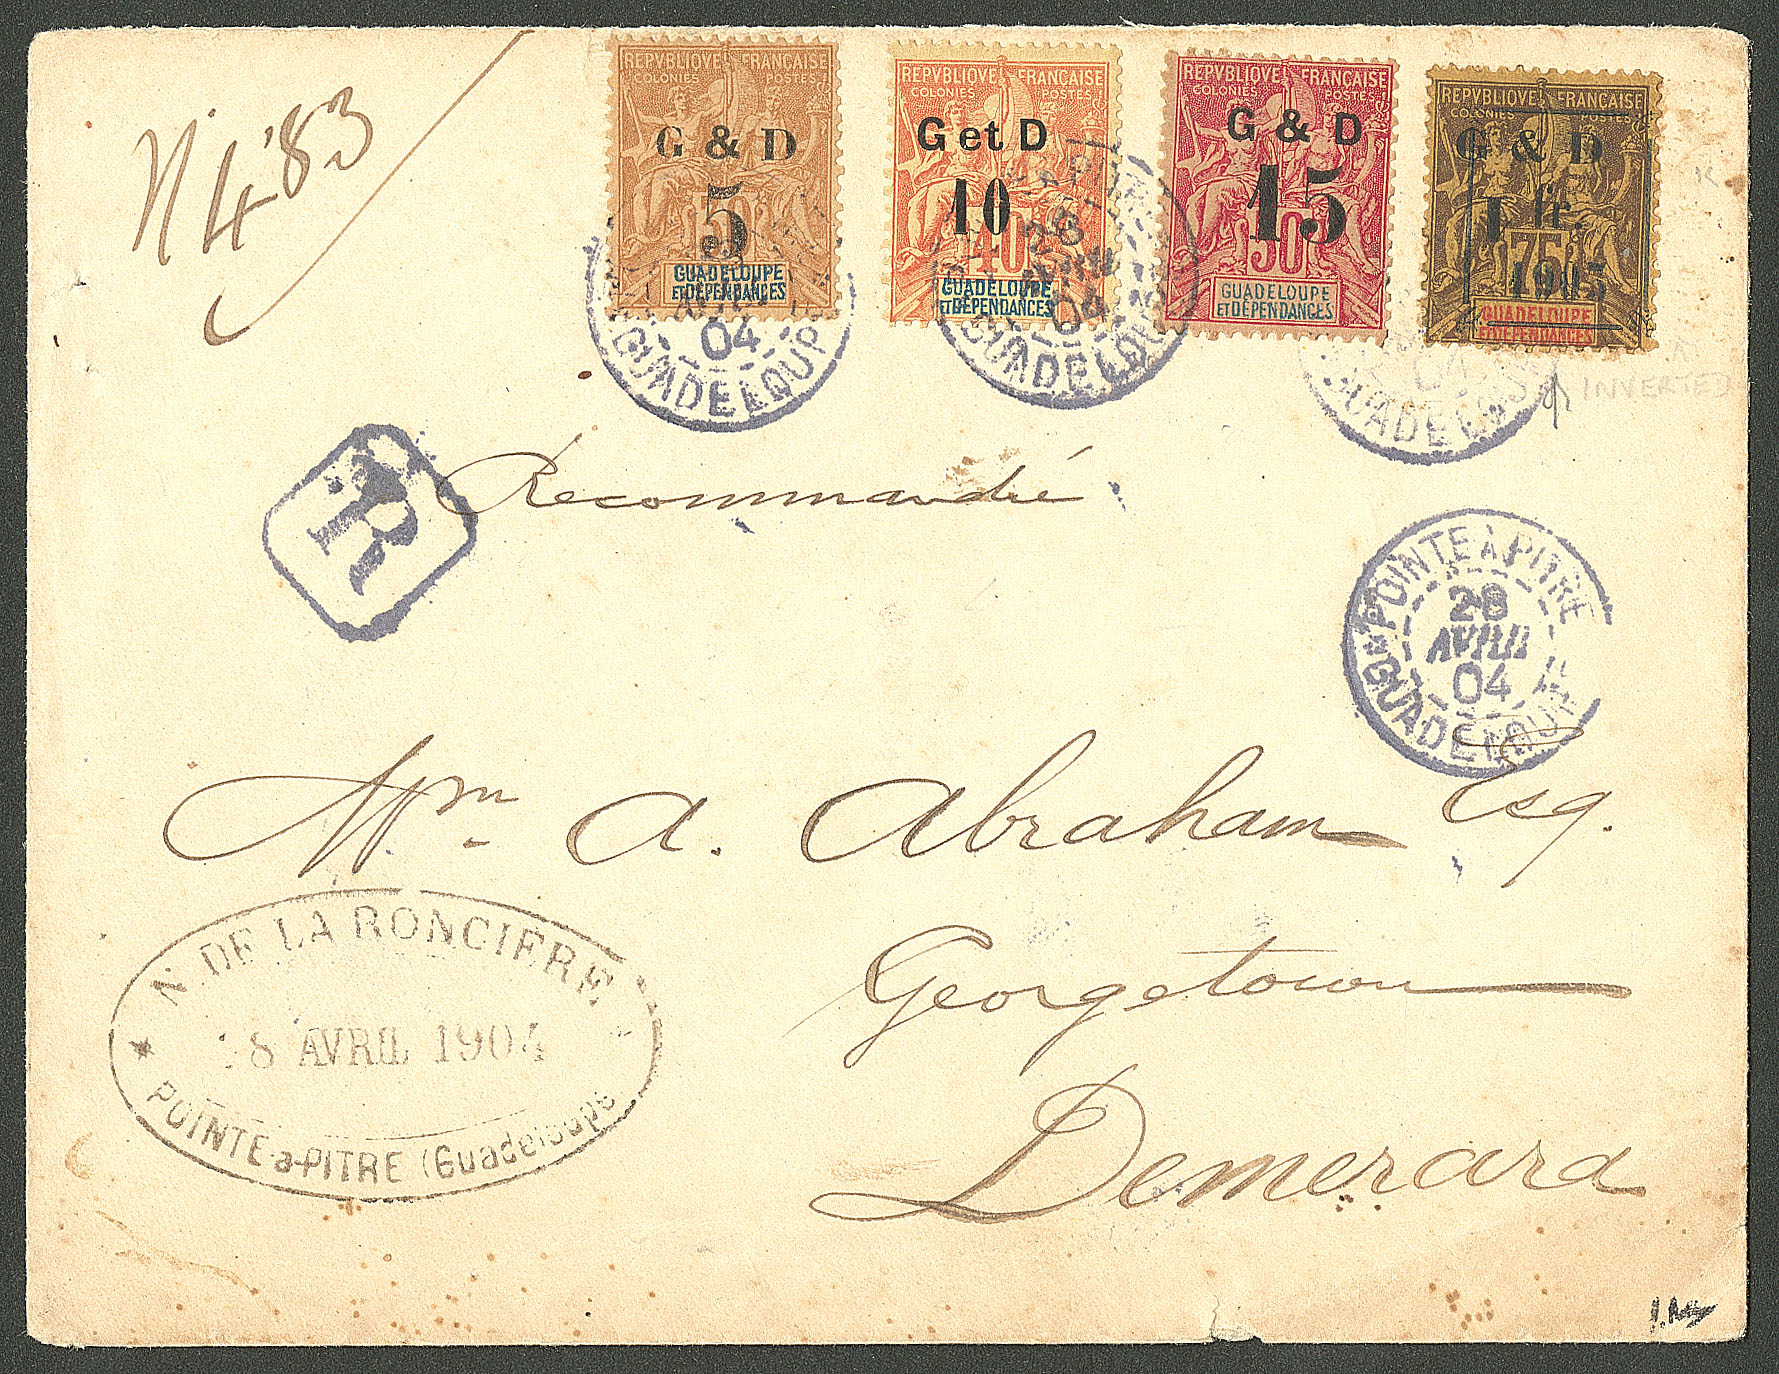 N 483
REPVBLIQVE FRANÇAISE
COLONIES POSTES
G & D
5
GUADELOUPE
ET DÉPENDANCES
REPVBLIQVE FRANÇAISE
COLONIES POSTES
G et D
10
40
GUADELOUPE
ET DÉPENDANCES
REPVBLIQVE FRANÇAISE
COLONIES POSTES
G & D
15
50
GUADELOUPE
ET DÉPENDANCES
REPVBLIQVE FRANÇAISE
COLONIES
G & D
1 fr.
75
1903
GUADELOUPE
ET DÉPENDANCES
04
GUADELOUPE
28
04
GUADELOUPE
04
INVERTED
R
Recommandé
POINTE À PITRE
28
AVRIL
04
GUADELOUPE
A. Abraham Esq.
Georgetown
Demerara
N. DE LA RONCIERE
8 AVRIL 1904
POINTE-a-PITRE (Guadeloupe